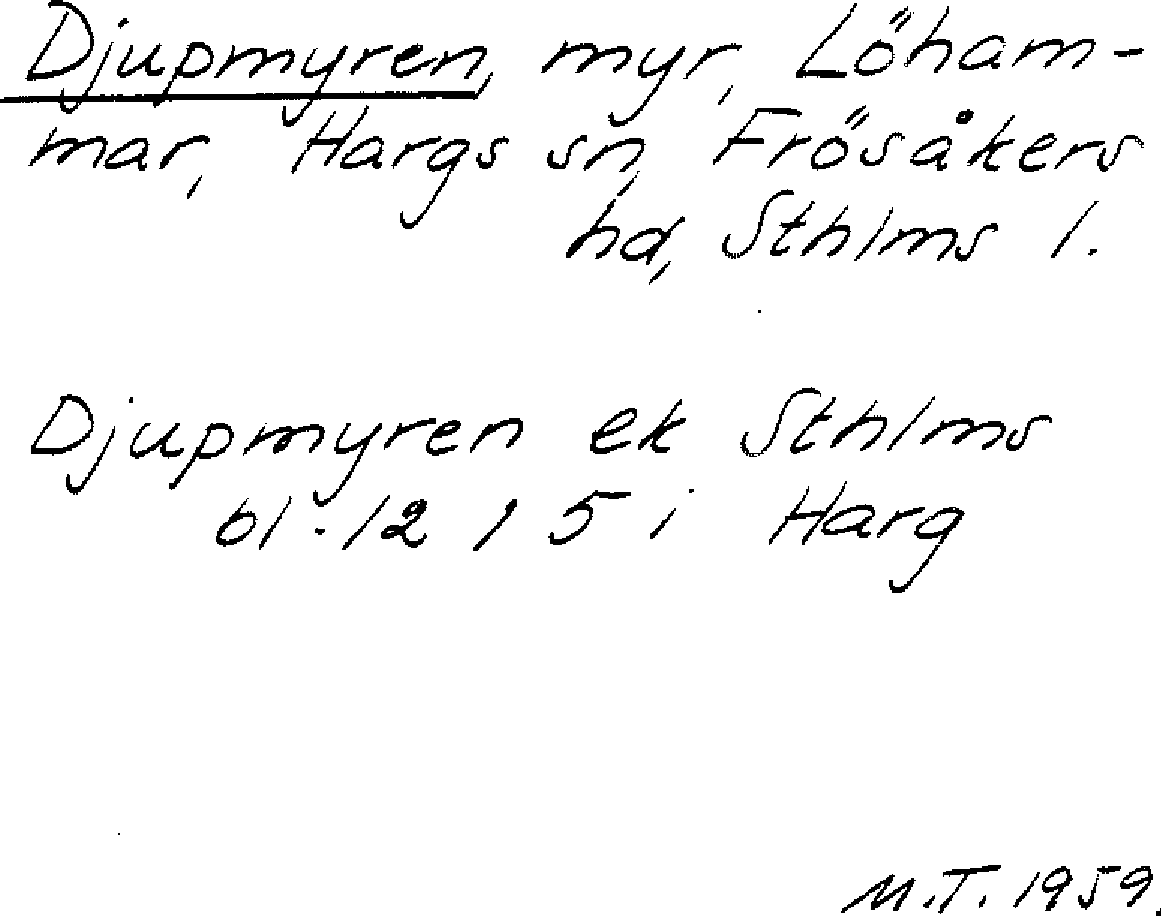 Djupmyren, myr, Löham-
mar, Hargs sn, Frösåkers
hd, Sthlms l.
Djupmyren ek Sthlms
bl. 12, 5 i Harg
M.T. 1959.